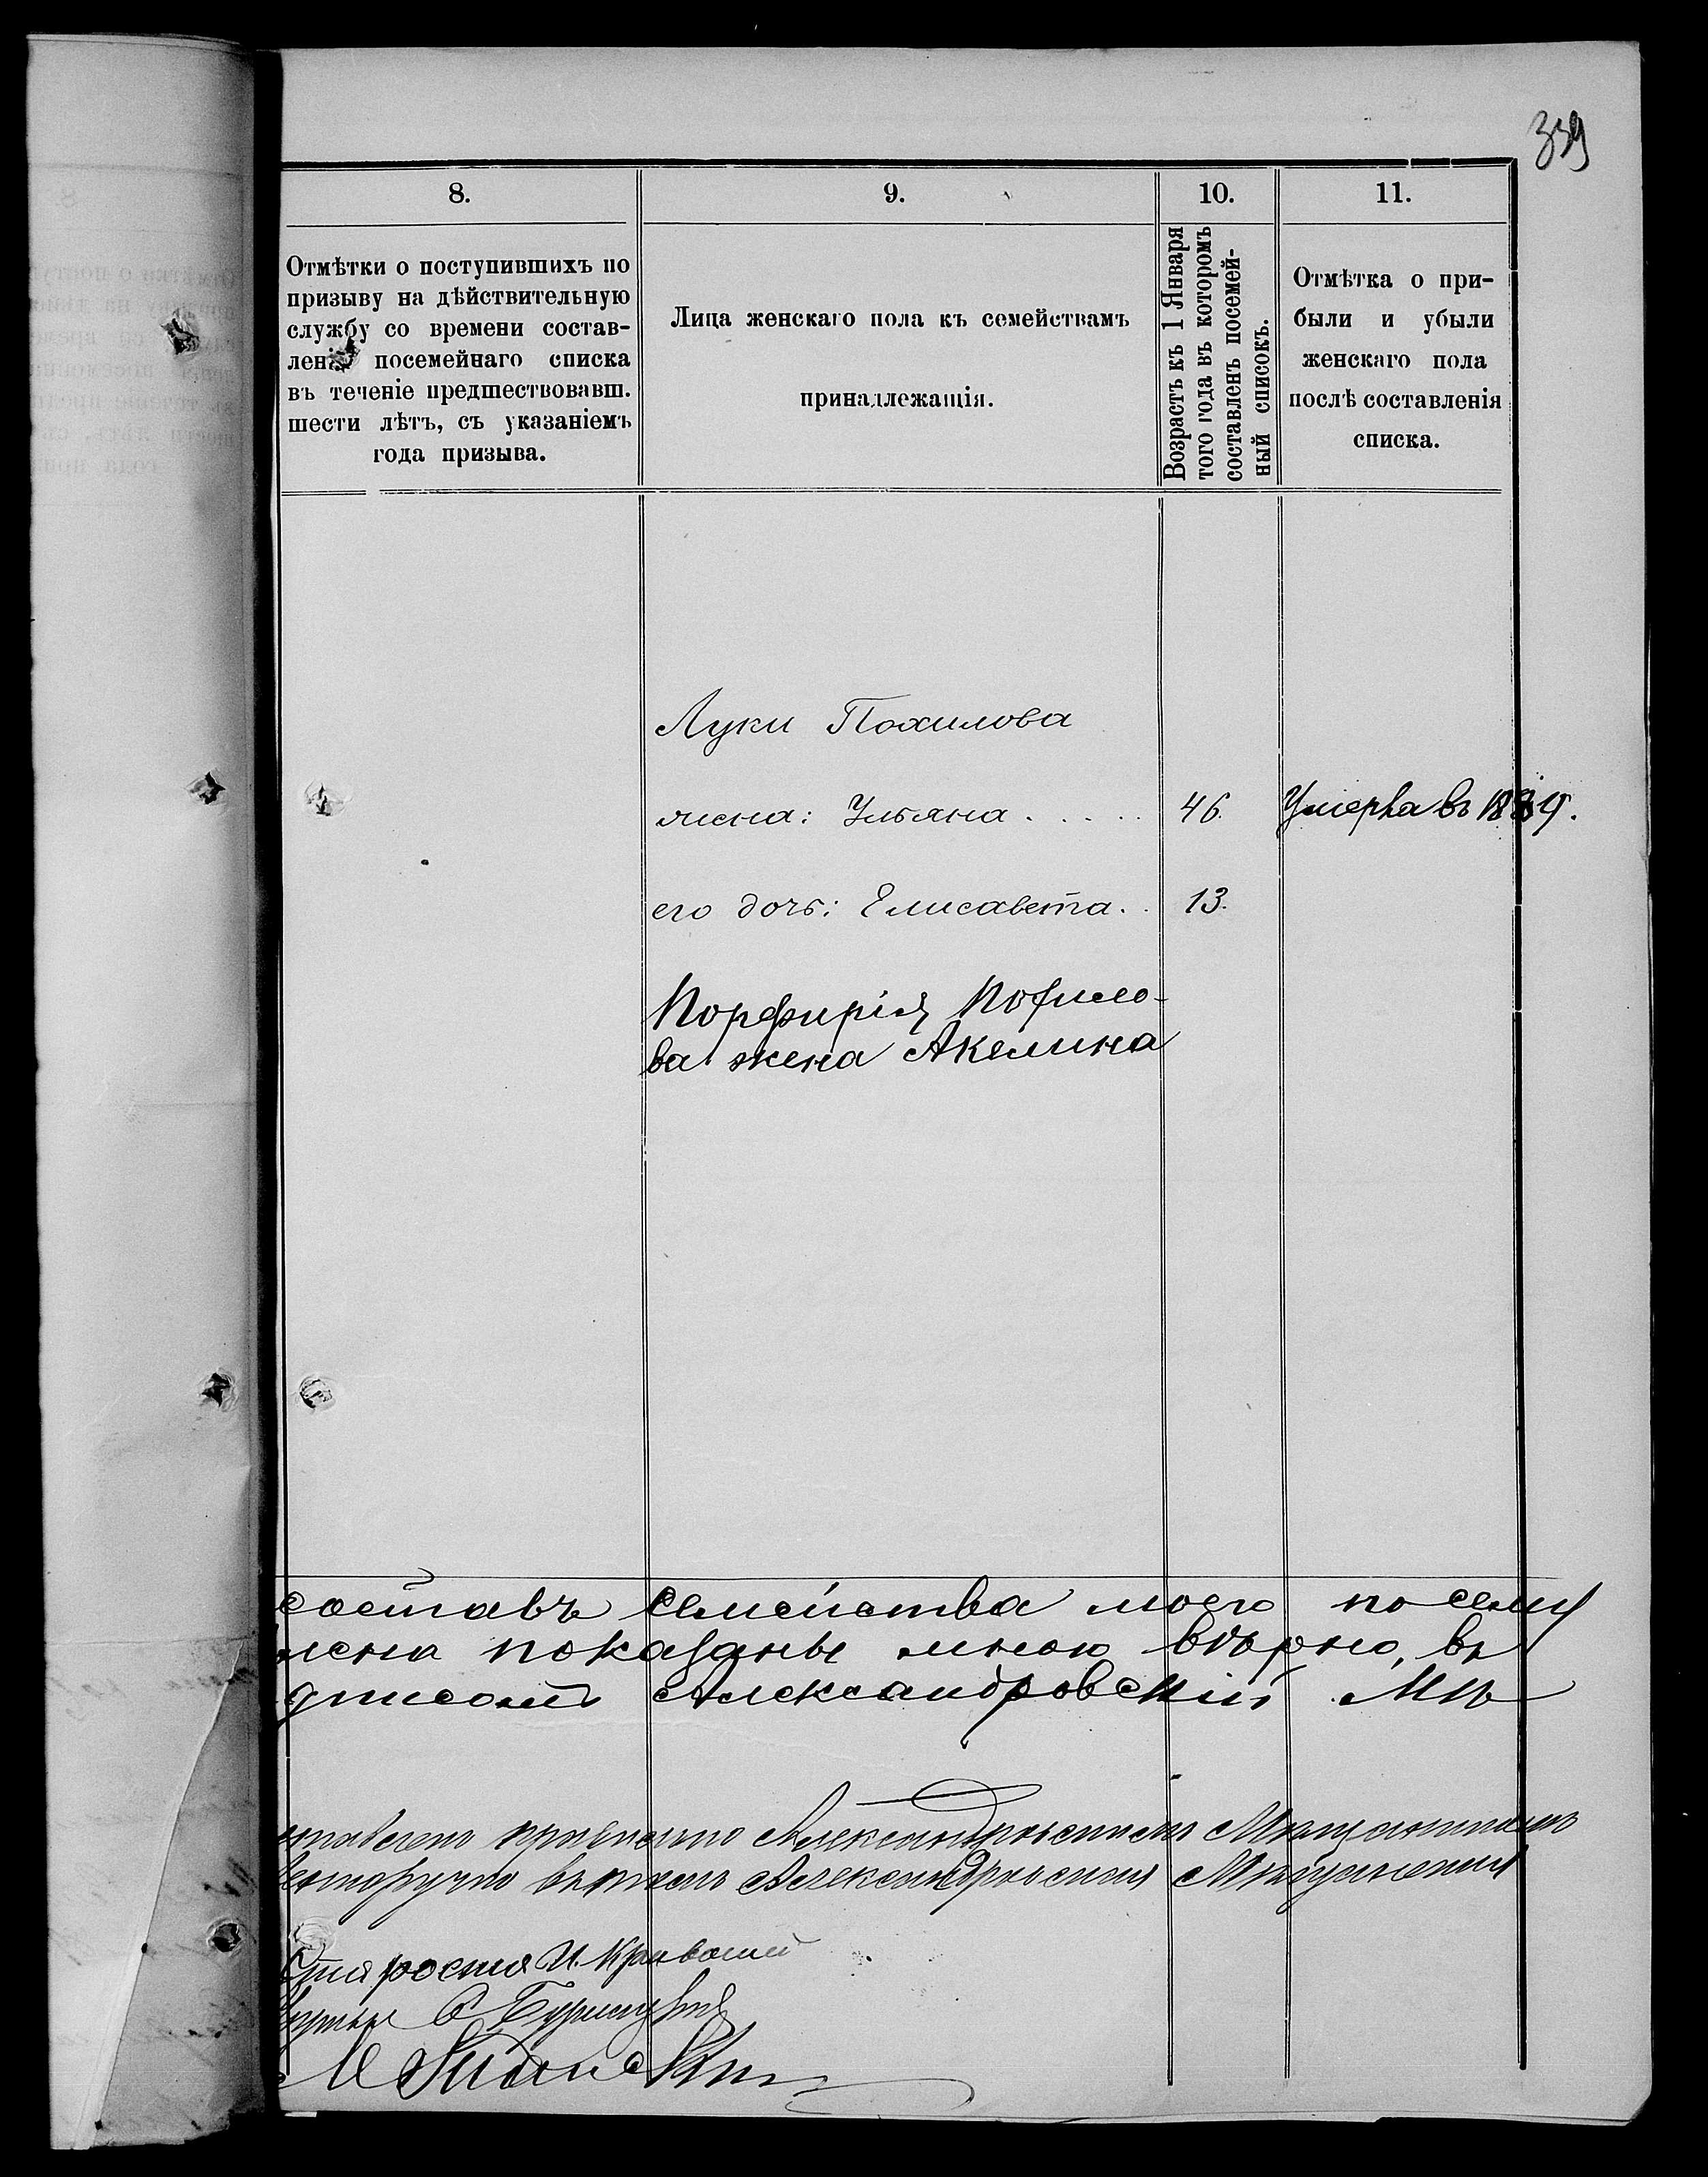 339
8.
9.
10.
11.
Отмѣтки о поступившихъ по
призыву на дѣйствительную
службу со времени состав-
ленія посемейнаго списка
въ теченіе предшествовавш.
шести лѣтъ, съ указаніемъ
года призыва.
Лица женскаго пола къ семействамъ
принадлежащія.
Возрастъ къ 1 Января
того года въ которомъ
составленъ посемей-
ный списокъ.
Отмѣтка о при-
были и убыли
женскаго пола
послѣ составленія
списка.
Луки Похилова
жена: Ульяна . . . . . 46. Умерла въ 1889.
его дочь: Елисавета. . 13.
Порфирія Похило-
ва жена Акелина
составъ семейства моего по сему
показаны мною вѣрно, въ
Александровскій Мѣ
Александровскимъ Мѣщанином
Александровскій Мѣщанинъ
Староста И. Кривошей